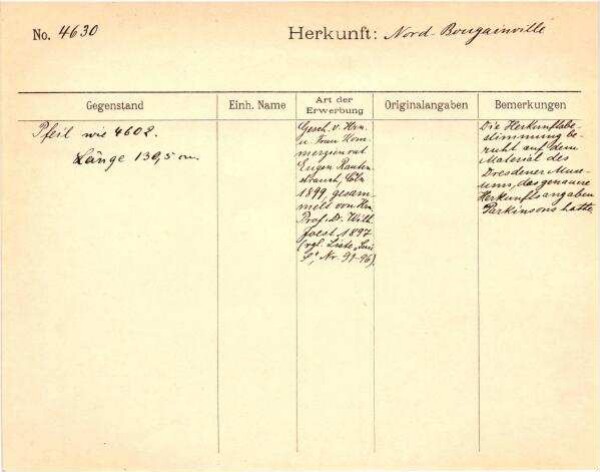 No. 4630
Herkunft: Nord-Bougainville
Gegenstand
Einh. Name
Art der Erwerbung
Originalangaben
Bemerkungen
Pfeil wie 4602.
Länge 130,5 cm.
Gesch. v. Hrn.
u. Frau Kom
merzienrat
Eugen Rauten
strauch, Cöln
1899, gesam-
melt von Hrn.
Prof. Dr. Wilh.
Joest, 1897
(vgl. Liste
Nr. 91-96).
Die Herkunftsbe
stimmung be-
ruht auf dem
Material des
Dresdener Muse-
ums, das genauere
Herkunftsangaben
Parkinsons hatte